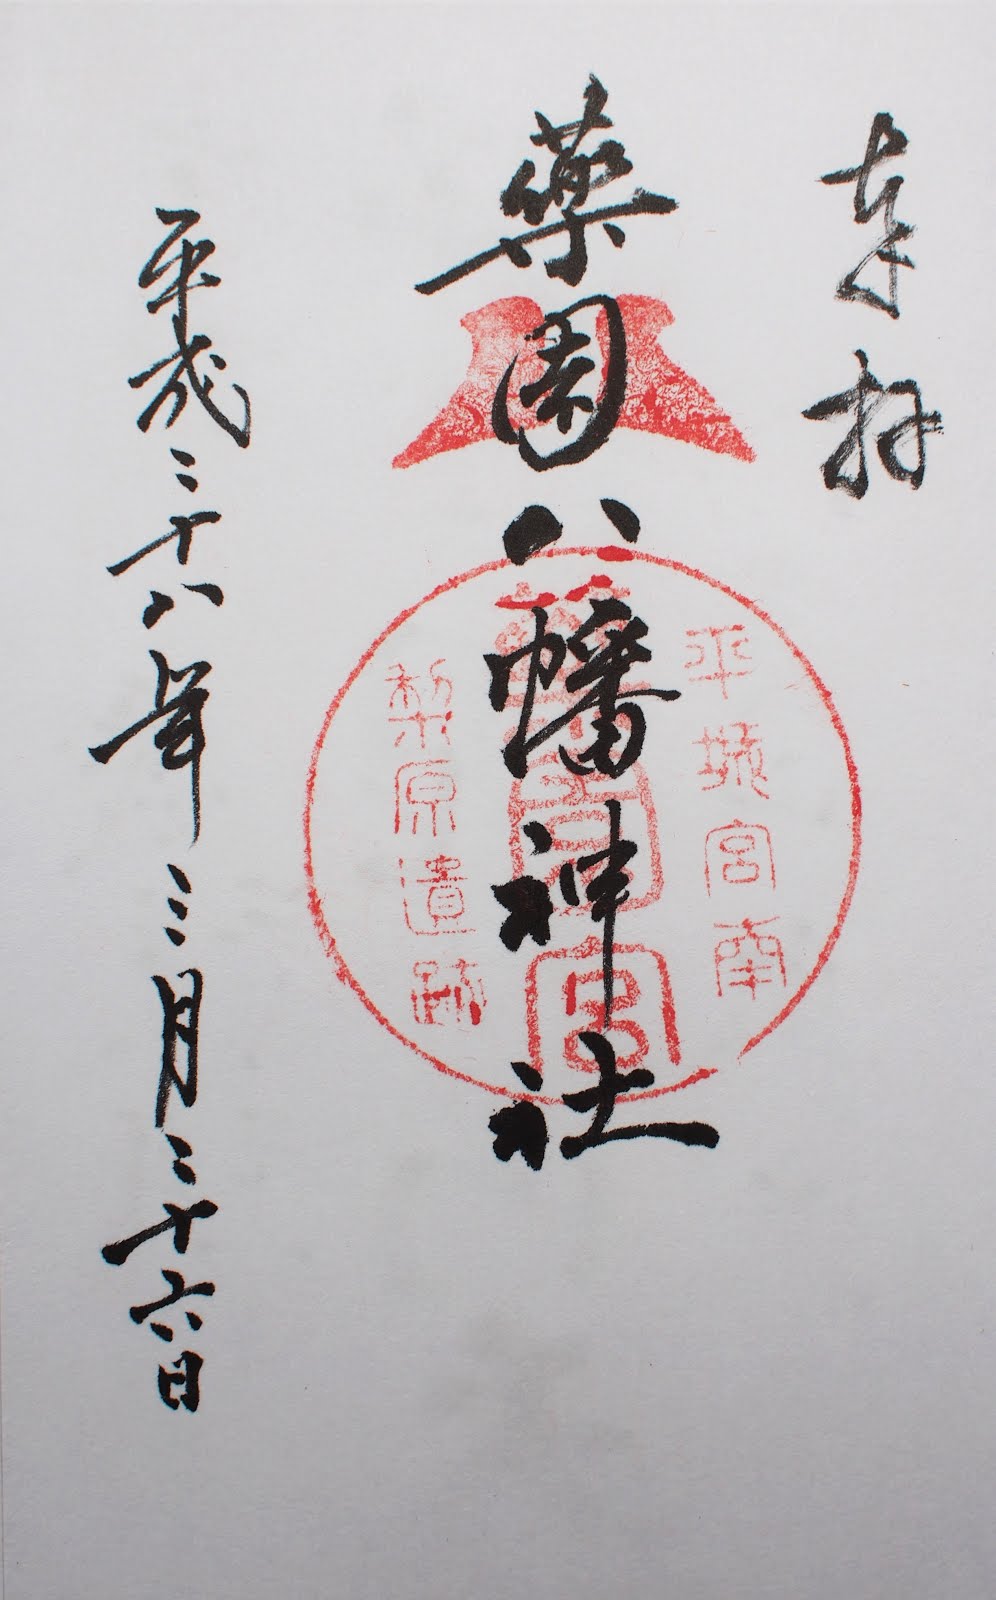 奉拝
藥園八幡神社
平成二十八年三月二十六日
平城宮南
梨原遺跡